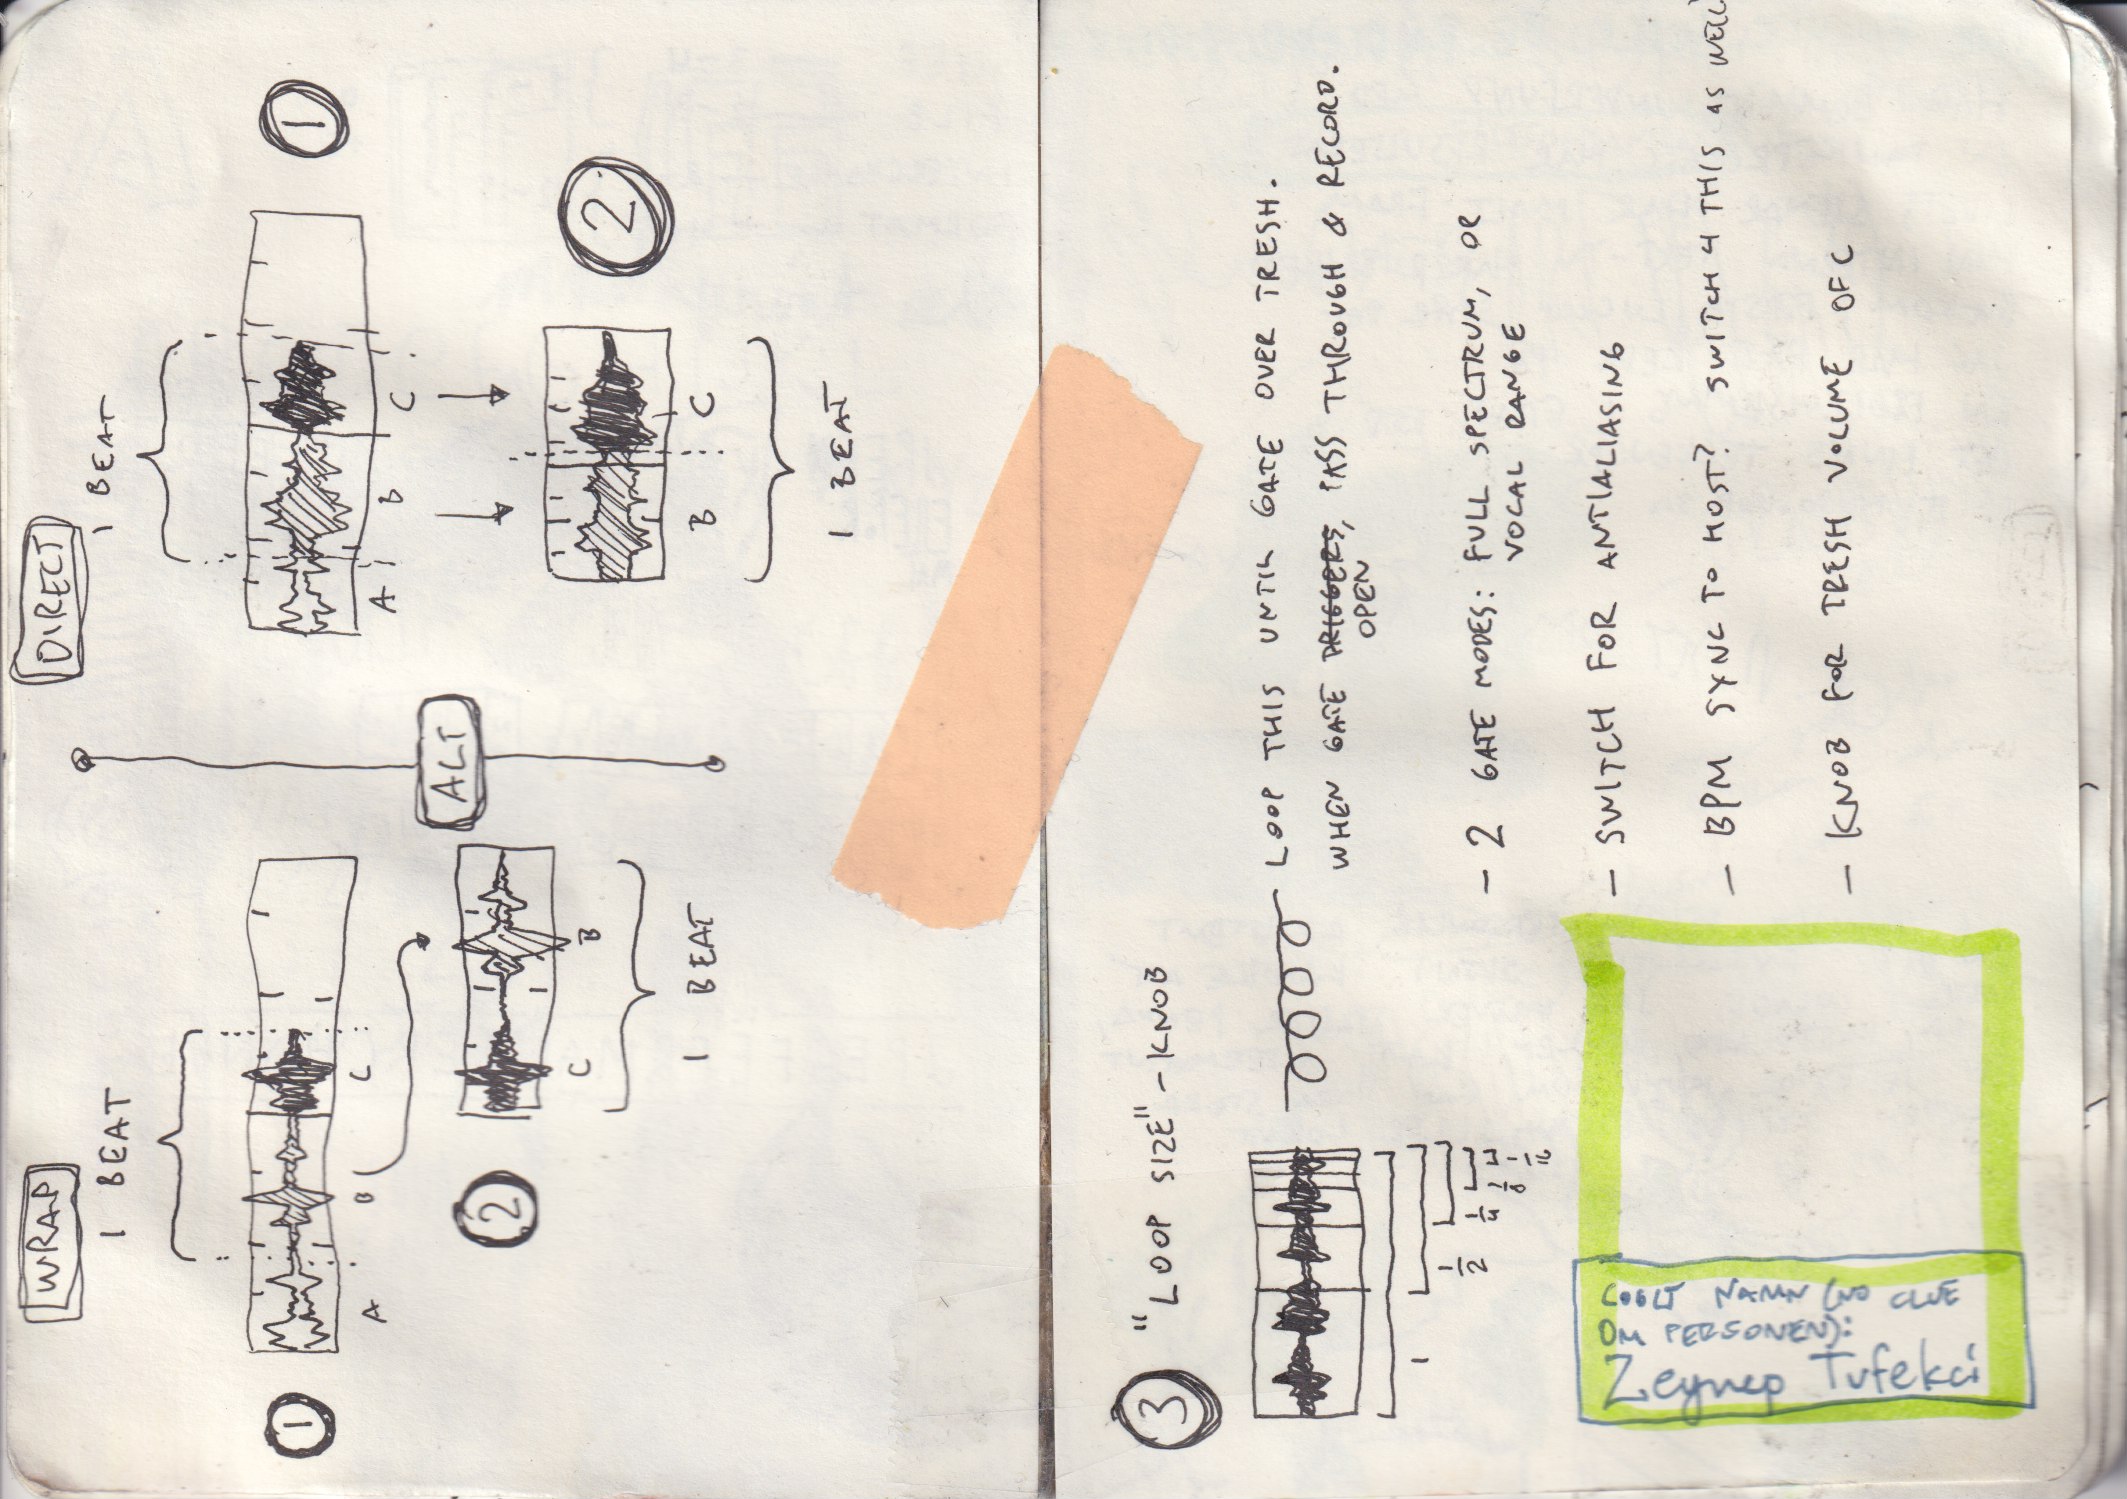 WRAP
1 BEAT
1
A B C
2
C B
1 BEAT
ALT
DIRECT
1 BEAT
1
A B C
2
B C
1 BEAT
3
"LOOP SIZE" - KNOB
1
1/2
1/4
1/8
1/16
LOOP THIS UNTIL GATE OVER TRESH.
WHEN GATE TRIGGERS, PASS THROUGH & RECORD.
OPEN
- 2 GATE MODES: FULL SPECTRUM, OR
VOCAL RANGE
- SWITCH FOR ANTIALIASING
- BPM SYNC TO HOST? SWITCH 4 THIS AS WELL
- KNOB FOR TRESH VOLUME OFC
COOLT NAMN (NO CLUE
OM PERSONEN):
Zeynep Tufekci